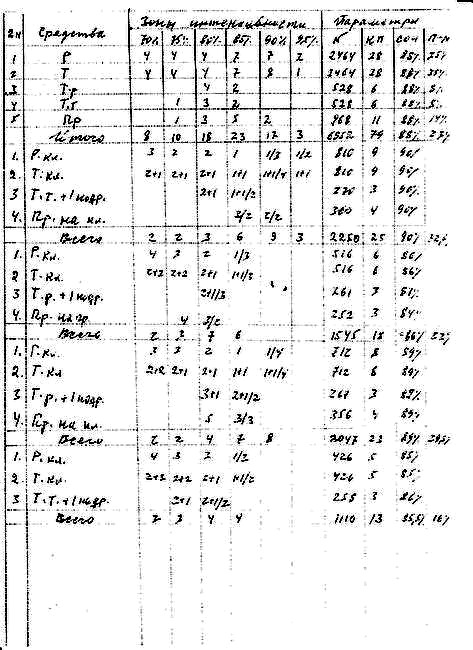 Зоны интенсивности Параметры
Средства 70% 75% 80% 85% 90% 95% N КП СОИ
1 Р 4 4 4 7 7 2 2464 28 88% 25%
2 Т 4 4 4 7 8 1 2464 28 88% 25%
3 Т.р 4 2 528 6 88% 5%
4 Т.Т 1 3 2 528 6 88% 5%
5 Пр 1 3 5 2 968 11 88%
Итого 8 10 18 23 17 3 79 88%
1. Р.кл. 3 2 2 1 1/3 1/2 810 9 90%
2. Т.кл. 2+1 2+1 2+1 1+1 1+1/4 1+1 810 9 90%
3 Т.Т.+1 подр. 2+1 1+1/2 270 3 90%
4. Пр. на кл. 2/2 2/2 360 4 90%
Всего 2 2 3 6 9 3 2250 25 90%
1. Р.кл. 4 3 2 1/3 516 6 86%
2 Т.кл. 2+2 2+2 2+1 1+1/3 516 6 86%
3 Т.р.+1 подр. 2+1/3 261 3
4. Пр. на гр. 4 3/2 252 3 84%
Всего 2 3 7 6 1545 18 86%
1. Г.кл. 3 3 2 1 1/4 712 8 89%
2. Т.кл 2+2 2+1 2+1 1+1 1+1/4 712 8 89%
3 Т.р.+1 подр. 3+1 2+1/2 267 3 89%
4. Пр. на кл. 5 3/3 356 4 89%
Всего 2 2 4 7 8 2047 23 89%
1. Р.кл. 4 3 2 1/2 426 5 85%
2. Т.кл. 2+2 2+2 2+1 1+1/2 426 5 85%
3 Т.Т.+1 подр. 2+1 2+1/2 258 3 86%
Всего 2 3 4 4 1110 13 85,5% 16%